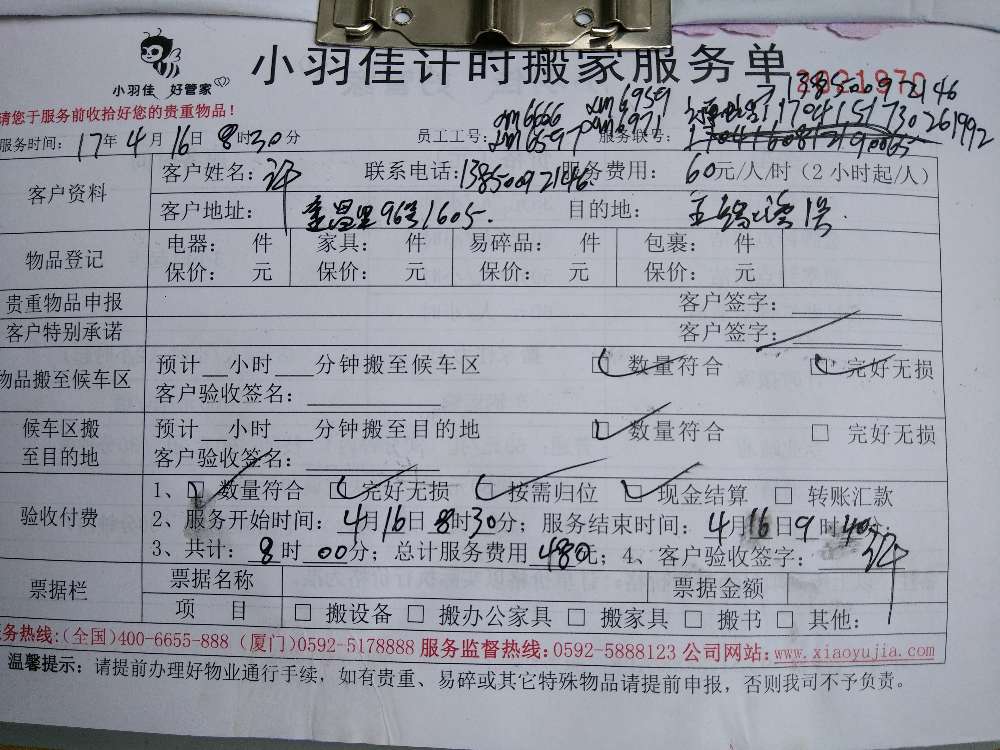 小羽佳计时搬家服务单
小羽佳 好管家
请您于服务前收拾好您的贵重物品！
13850092146
服务时间：17年4月16日8时30分 员工工号： 服务联号：
客户资料 客户姓名：许 联系电话：13850092146 服务费用：60元/人/时（2小时起/人）
客户地址： 96 1605. 目的地：
物品登记 电器： 件 家具： 件 易碎品： 件 包裹： 件
保价： 元 保价： 元 保价： 元 保价： 元
贵重物品申报 客户签字：
客户特别承诺 客户签字：
物品搬至候车区 预计__小时___分钟搬至候车区 □ 数量符合 □ 完好无损
客户验收签名：
候车区搬至目的地 预计__小时___分钟搬至目的地 □ 数量符合 □ 完好无损
客户验收签名：
验收付费 1、□ 数量符合 □ 完好无损 □ 按需归位 □ 现金结算 □ 转账汇款
2、服务开始时间：4月16日8时30分；服务结束时间：4月16日9时40分；
3、共计：8时00分；总计服务费用480元；4、客户验收签字：许
票据栏 票据名称 票据金额
项 目 □ 搬设备 □ 搬办公家具 □ 搬家具 □ 搬书 □ 其他：
服务热线：(全国)400-6655-888 (厦门)0592-5178888 服务监督热线：0592-5888123 公司网站：www.xiaoyujia.com
温馨提示：请提前办理好物业通行手续，如有贵重、易碎或其它特殊物品请提前申报，否则我司不予负责。